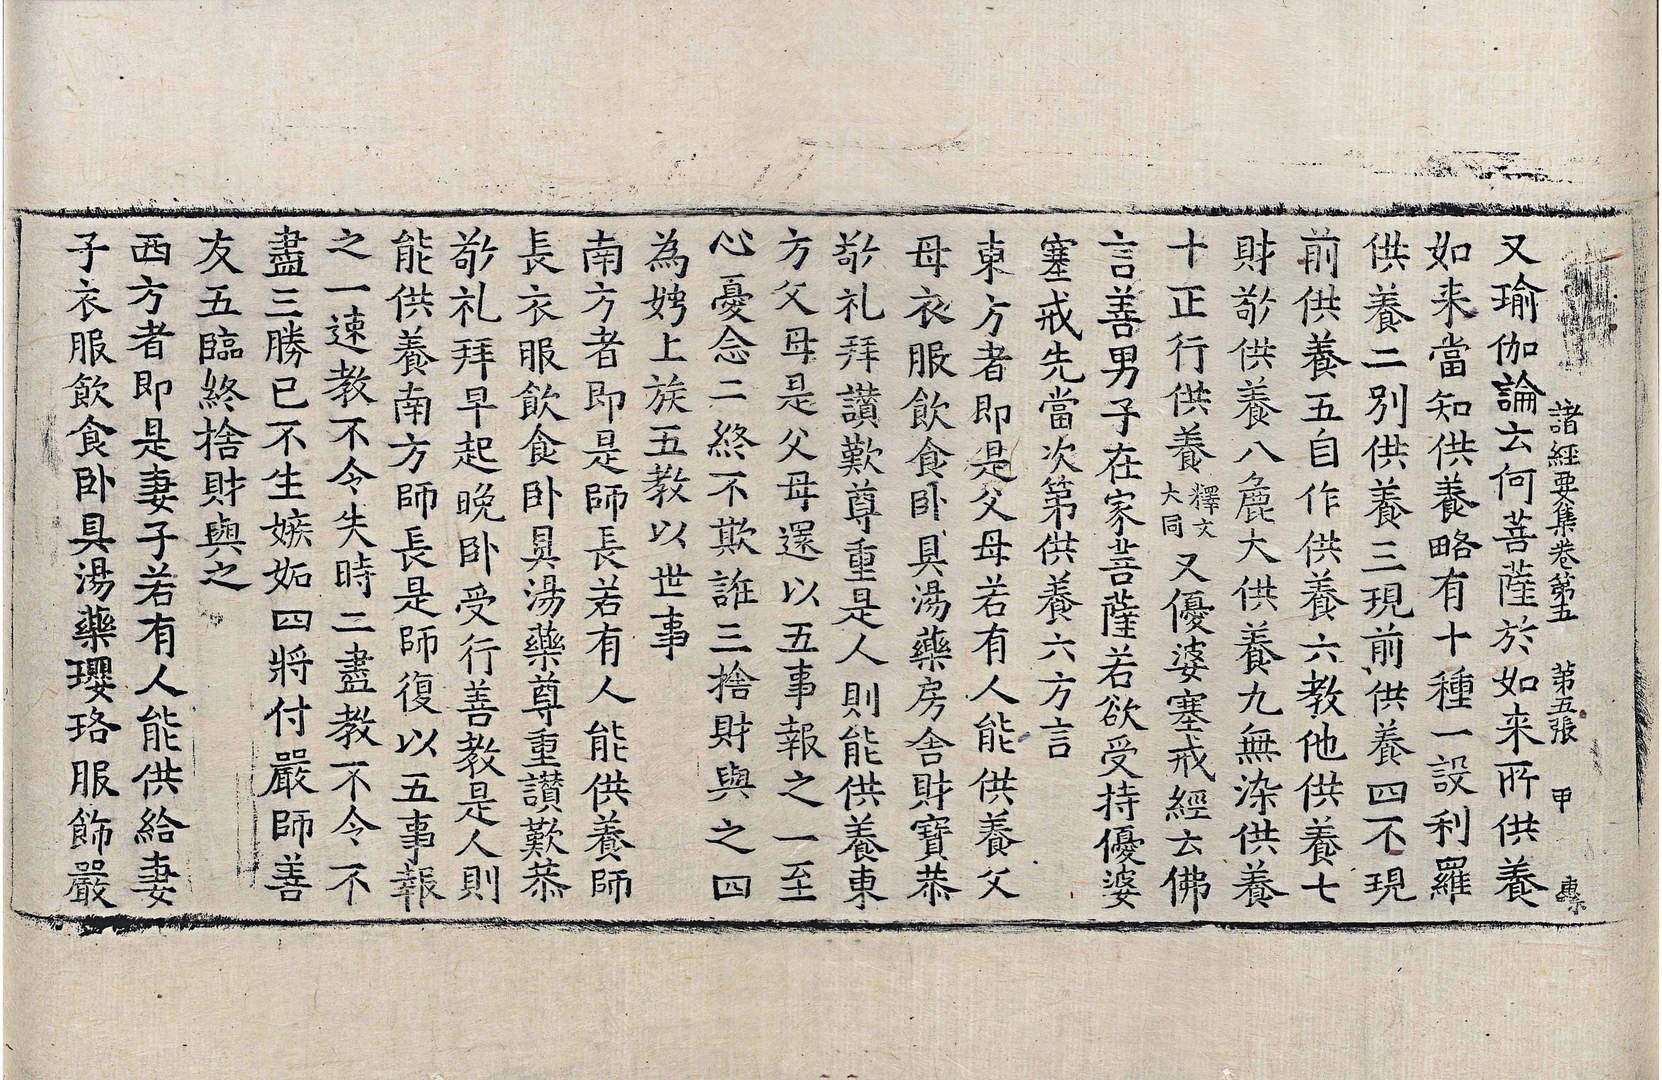 諸經要集卷第五 第五張 甲
又瑜伽論云何菩薩於如来所供養
如来當知供養略有十種一設利羅
供養二別供養三現前供養四不現
前供養五自作供養六教他供養七
財敬供養八麁大供養九無染供養
十正行供養釋文大同又優婆塞戒經云佛
言善男子在家菩薩若欲受持優婆
塞戒先當次第供養六方言
東方者即是父母若有人能供養父
母衣服飲食卧具湯藥房舍財寶恭
敬礼拜讃歎尊重是人則能供養東
方父母是父母還以五事報之一至
心憂念二終不欺誑三捨財與之四
為娉上族五教以世事
南方者即是師長若有人能供養師
長衣服飲食卧具湯藥尊重讃歎恭
敬礼拜早起晚卧受行善教是人則
能供養南方師長是師復以五事報
之一速教不令失時二盡教不令不
盡三勝已不生嫉妬四將付嚴師善
友五臨終捨財與之
西方者即是妻子若有人能供給妻
子衣服飲食卧具湯藥瓔珞服飾嚴